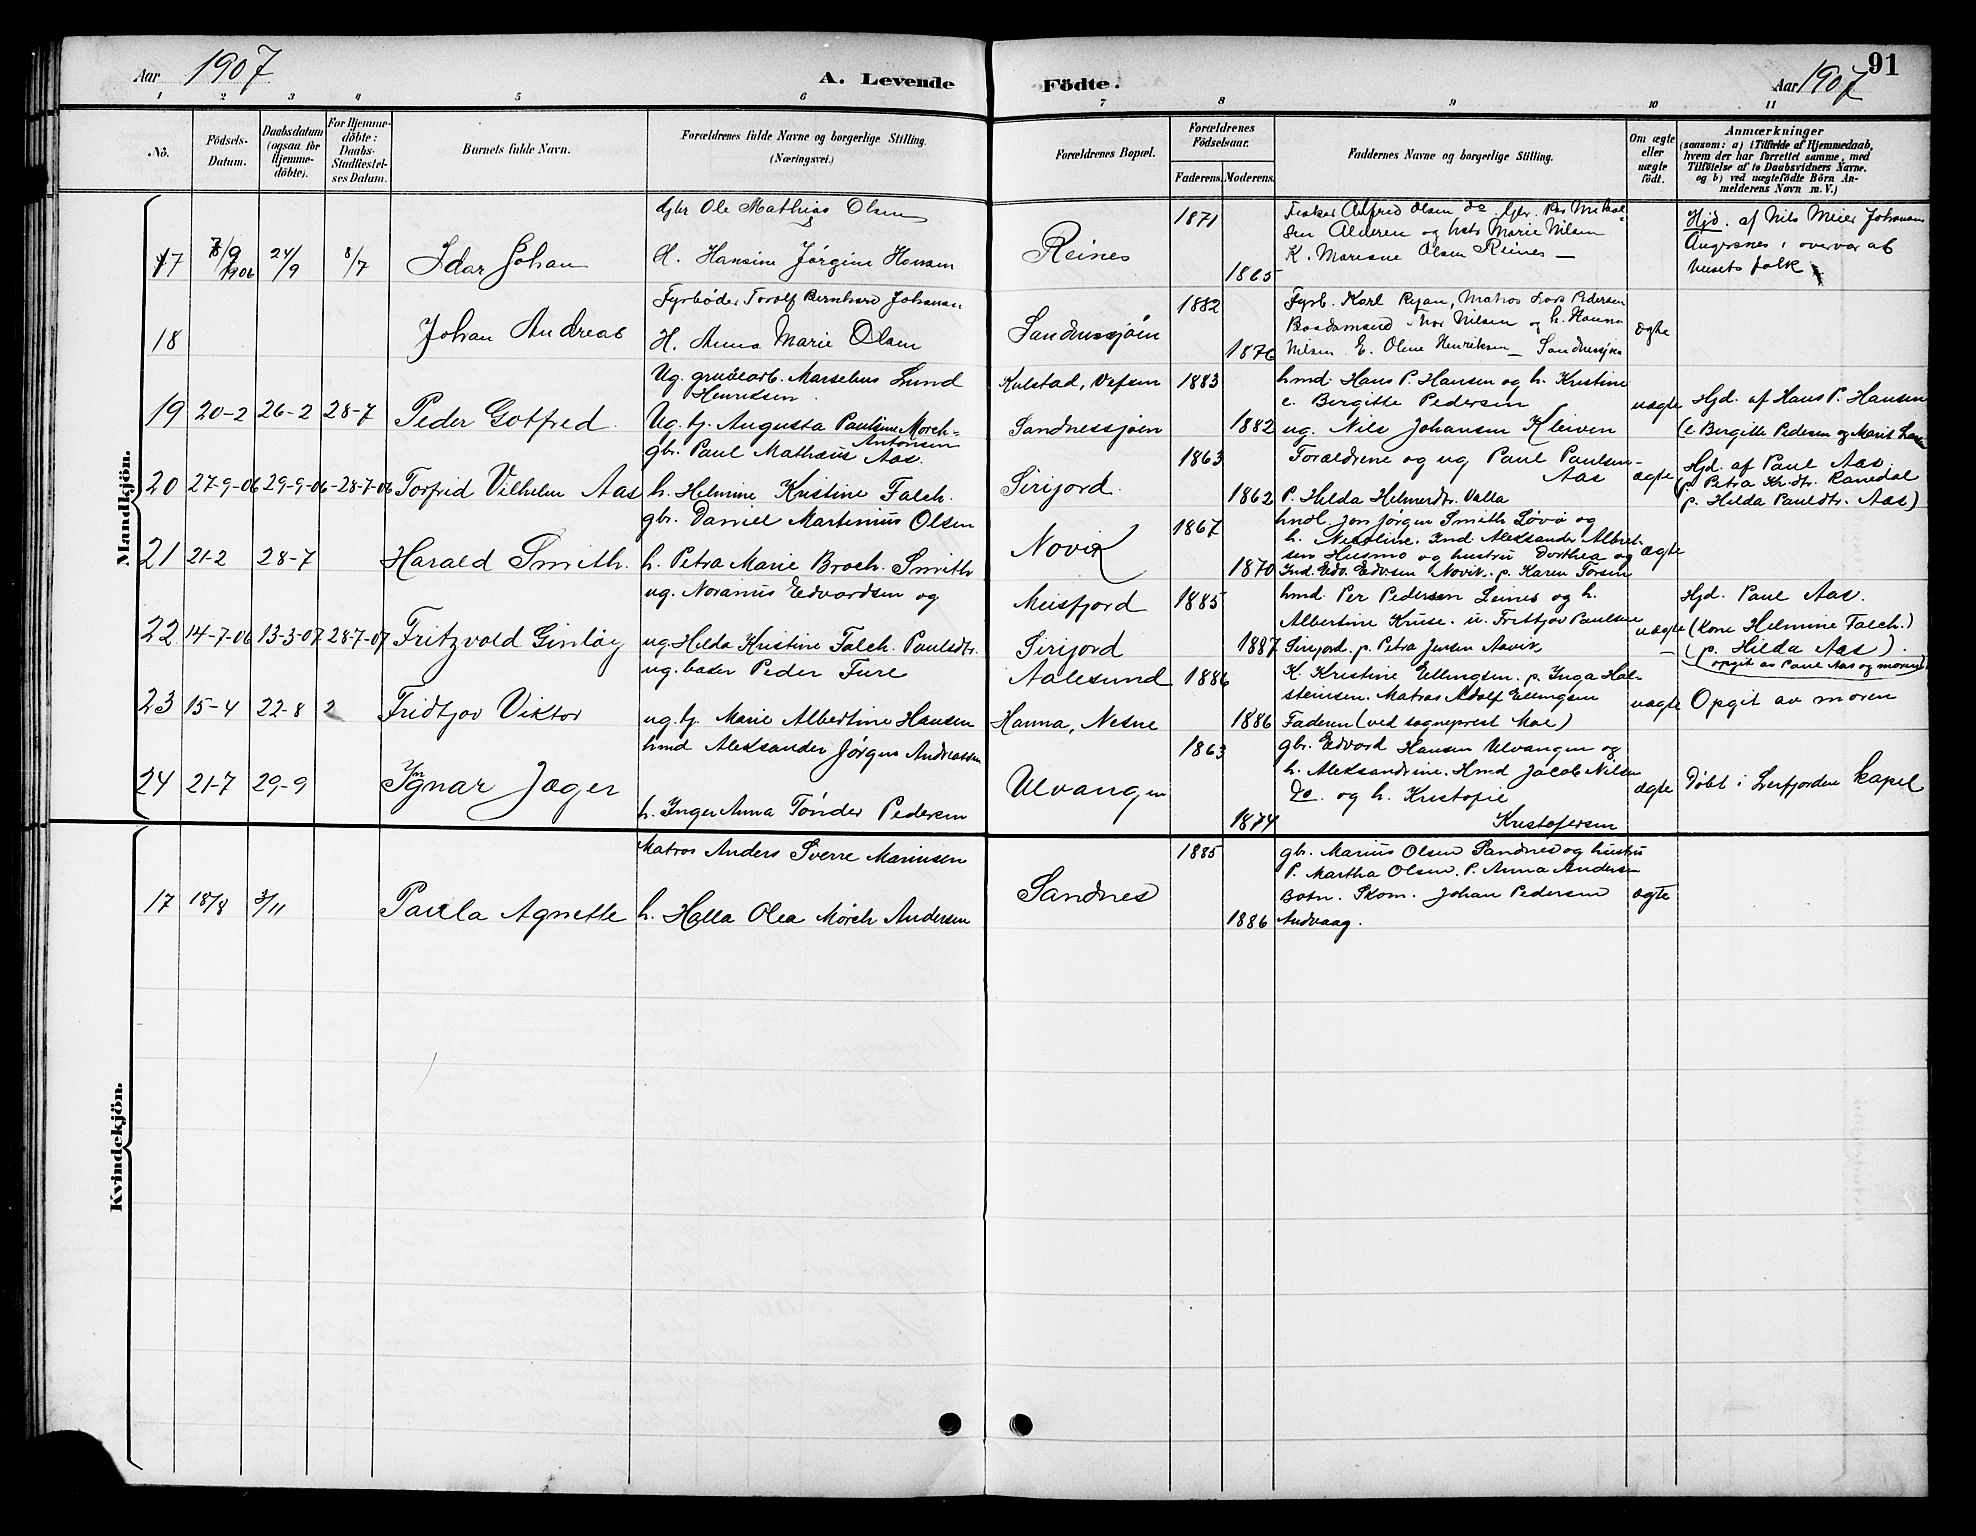 Aar 1907 A. Levende Födte. Aar 1907 91
1 2 3 4 5 6 7 8 9 10 11
No. Födsels-Datum. Daabsdatum (ogsaa for Hjemmedöbte). For Hjemmedöbte: Daabs-Stadfæstelses Datum. Barnets fulde Navn. Forældrenes fulde Navne og borgerlige Stilling. (Næringsvei.) Forældrenes Bopæl. Forældrenes Födselsaar. Faderens. Moderens. Faddernes Navne og borgerlige Stilling. Om ægte eller uægte födt. Anmærkninger (saasom: a) i Tilfælde af Hjemmedaab, hvem der har forrettet samme, med Tilföielse af to Daabsvidners Navne. og b) ved uægtefödte Börn Anmelderens Navn m. V.)
Mandkjön.
gbr Ole Mathias Olsen 1871 Fisker Alfred Olsen do gbr. Per Mikal-
sen Alderen og hust Marie Nilsen
K. Marisne Olsen Reines —
17 8/9 1906 24/9 8/7 Idar Johan H. Hansine Jørgine Hansen Reines 1865
Hjd. af Nils Meier Johansen
Angersnes i overvær af
husets folk
Fyrbøder Torolf Bernhard Johansen 1882 Fyrb. Karl Ryan, Matros Lars Pedersen
Baadsmand Thor Nilsen og h. Hanna
18 Johan Andreas H. Anna Marie Olsen Sandnessjøen 1876 Nilsen. E. Oline Henriksen — Sandnessjøen ægte
Ug. grubearb. Marselius Lund
Henriksen. Kulstad, Vefsen 1883 hmd. Hans P. Hansen og h. Kristine
e. Bergitte Pedersen
19 20-2 26-2 28-7 Peder Gotfred. Ug. tj. Augusta Pauline Mørch-
Antonsen Sandnessjøen 1882 ug. Nils Johansen Kleiven uægte
Hjd. af Hans P. Hansen
(e. Bergitte Pedersen og Marit
gbr. Paul Mathæus Aas. 1863 Forældrene og ug Paul Paulsen-
Aas
20 27-9-06 29-9-06 -28-7-06 Torfrid Vilhelm Aas h. Helmine Kristine Falch. Sirijord. 1862 P. Hilda Helmerdtr. Valla ægte
Hjd. af Paul Aas.
(p. Petra Kr.dtr. Ranedal
p. Hilda Pauldtr. Aas)
gbr. Daniel Martinius Olsen 1867 hndl. Jon Jørgen Smith Løvø og
h. Nicoline. Ind. Aleksander Albret-
sen Husmo og hustru Dorthea og
21 21-2 28-7 Harald Smith. h. Petra Marie Broch. Smith Novik 1870 Ind. Edv. Edvsen Novik. p. Karen Torsen ægte
ug. Noranus Edvardsen og Meisfjord 1885 hmd. Per Pedersen Leines og h.
Albertine Kruse. u. Fritjov Paulsen
22 14-7-06 13-3-07 28-7-07 Fritzvold Ginløg ug. Hilda Kristine Falch. Paulsdtr. Sirijord 1887 Sirijord. p. Petra Jensen Aavik uægte
Hjd. Paul Aas.
(Kone Helmine Falch.)
(p. Hilda Aas).
opgit av Paul Aas og moren)
ug. baker Peder Fure Aalesund 1886 K. Kristine Ellingsen. p. Inga Hal-
steinsen. Matros Adolf Ellingsen
23 15-4 22-8 2 Fridtjov Viktor ug. tj. Marie Albertine Hansen Hanna, Nesne 1886 Faderen (ved sogneprest Moe) uægte Opgit av moren
hmd Aleksander Jørgen Andreassen 1863 gbr. Edvard Hansen Ulvangen og
h. Aleksandrine. Hmd Jacob Nilsen
Do. og h. Kristofie
24 21-7 29-9 Ignar Jæger h. Inger Anna Tønder Pedersen Ulvangen 1874 Kristofersen ægte Døbt i Leirfjorden kapel
Kvindekjön.
Matros Anders Sverre Marinsen 1885 gbr. Marius Olsen Sandnes og hustru
P. Martha Olsen. P. Anna Andersen
Botn. Skom. Johan Pedersen
17 18/8 3/11 Paula Agnette h. Halla Olea Mørch Andersen Sandnes 1886 Andvaag. ægte